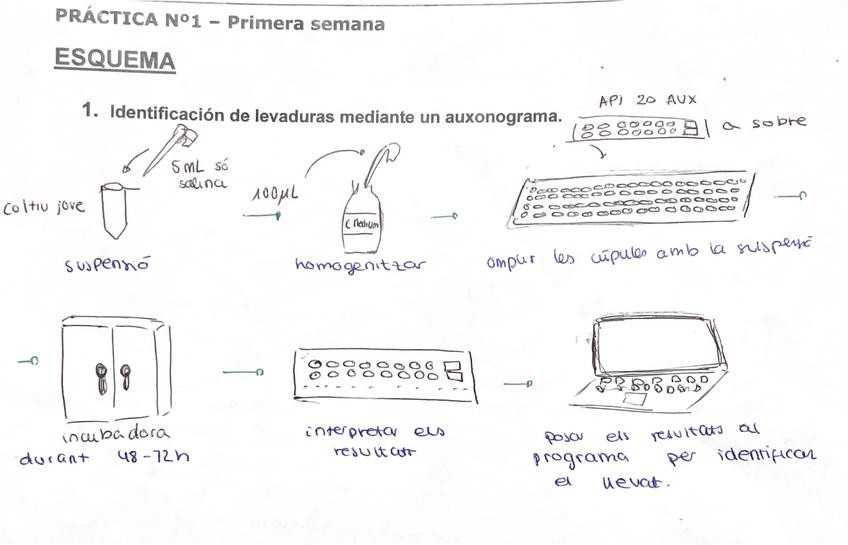 PRÁCTICA Nº1 – Primera semana
ESQUEMA
1. Identificación de levaduras mediante un auxonograma.
API 20 AUX
a sobre
5mL só
salina
coltiu jove
suspensió
100µL
C Medium
homogenitzar
ompur les cúpules amb la suspensió
incubadora
durant 48-72h
interpretar els
resultats
posar els resultats al
programa per identificar
el llevat.